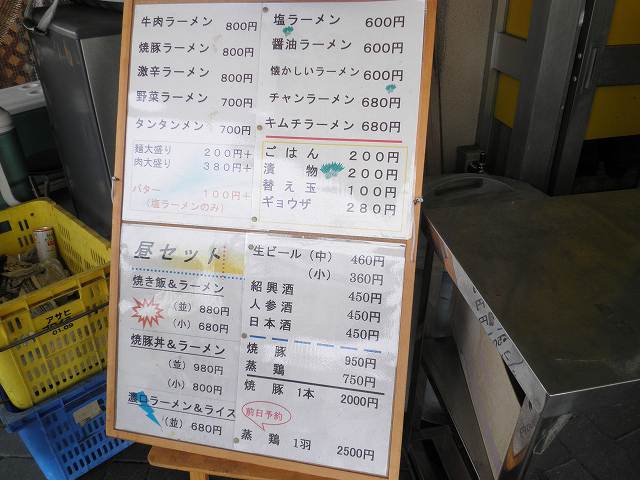 牛肉ラーメン 800円
焼豚ラーメン 800円
激辛ラーメン 800円
野菜ラーメン 700円
タンタンメン 700円
麺大盛り 200円+
肉大盛り 380円+
バター 100円+
(塩ラーメンのみ)
塩ラーメン 600円
醤油ラーメン 600円
懐かしいラーメン 600円
チャンラーメン 680円
キムチラーメン 680円
ごはん 200円
漬物 200円
替え玉 100円
ギョウザ 280円
昼セット
焼き飯&ラーメン
(並) 880円
(小) 680円
焼豚丼&ラーメン
(並) 980円
(小) 800円
濃口ラーメン&ライス
(並) 680円
生ビール (中) 460円
(小) 360円
紹興酒 450円
人参酒 450円
日本酒 450円
焼豚 950円
蒸鶏 750円
焼豚 1本 2000円
前日予約
蒸鶏 1羽 2500円
アサヒ
01.09